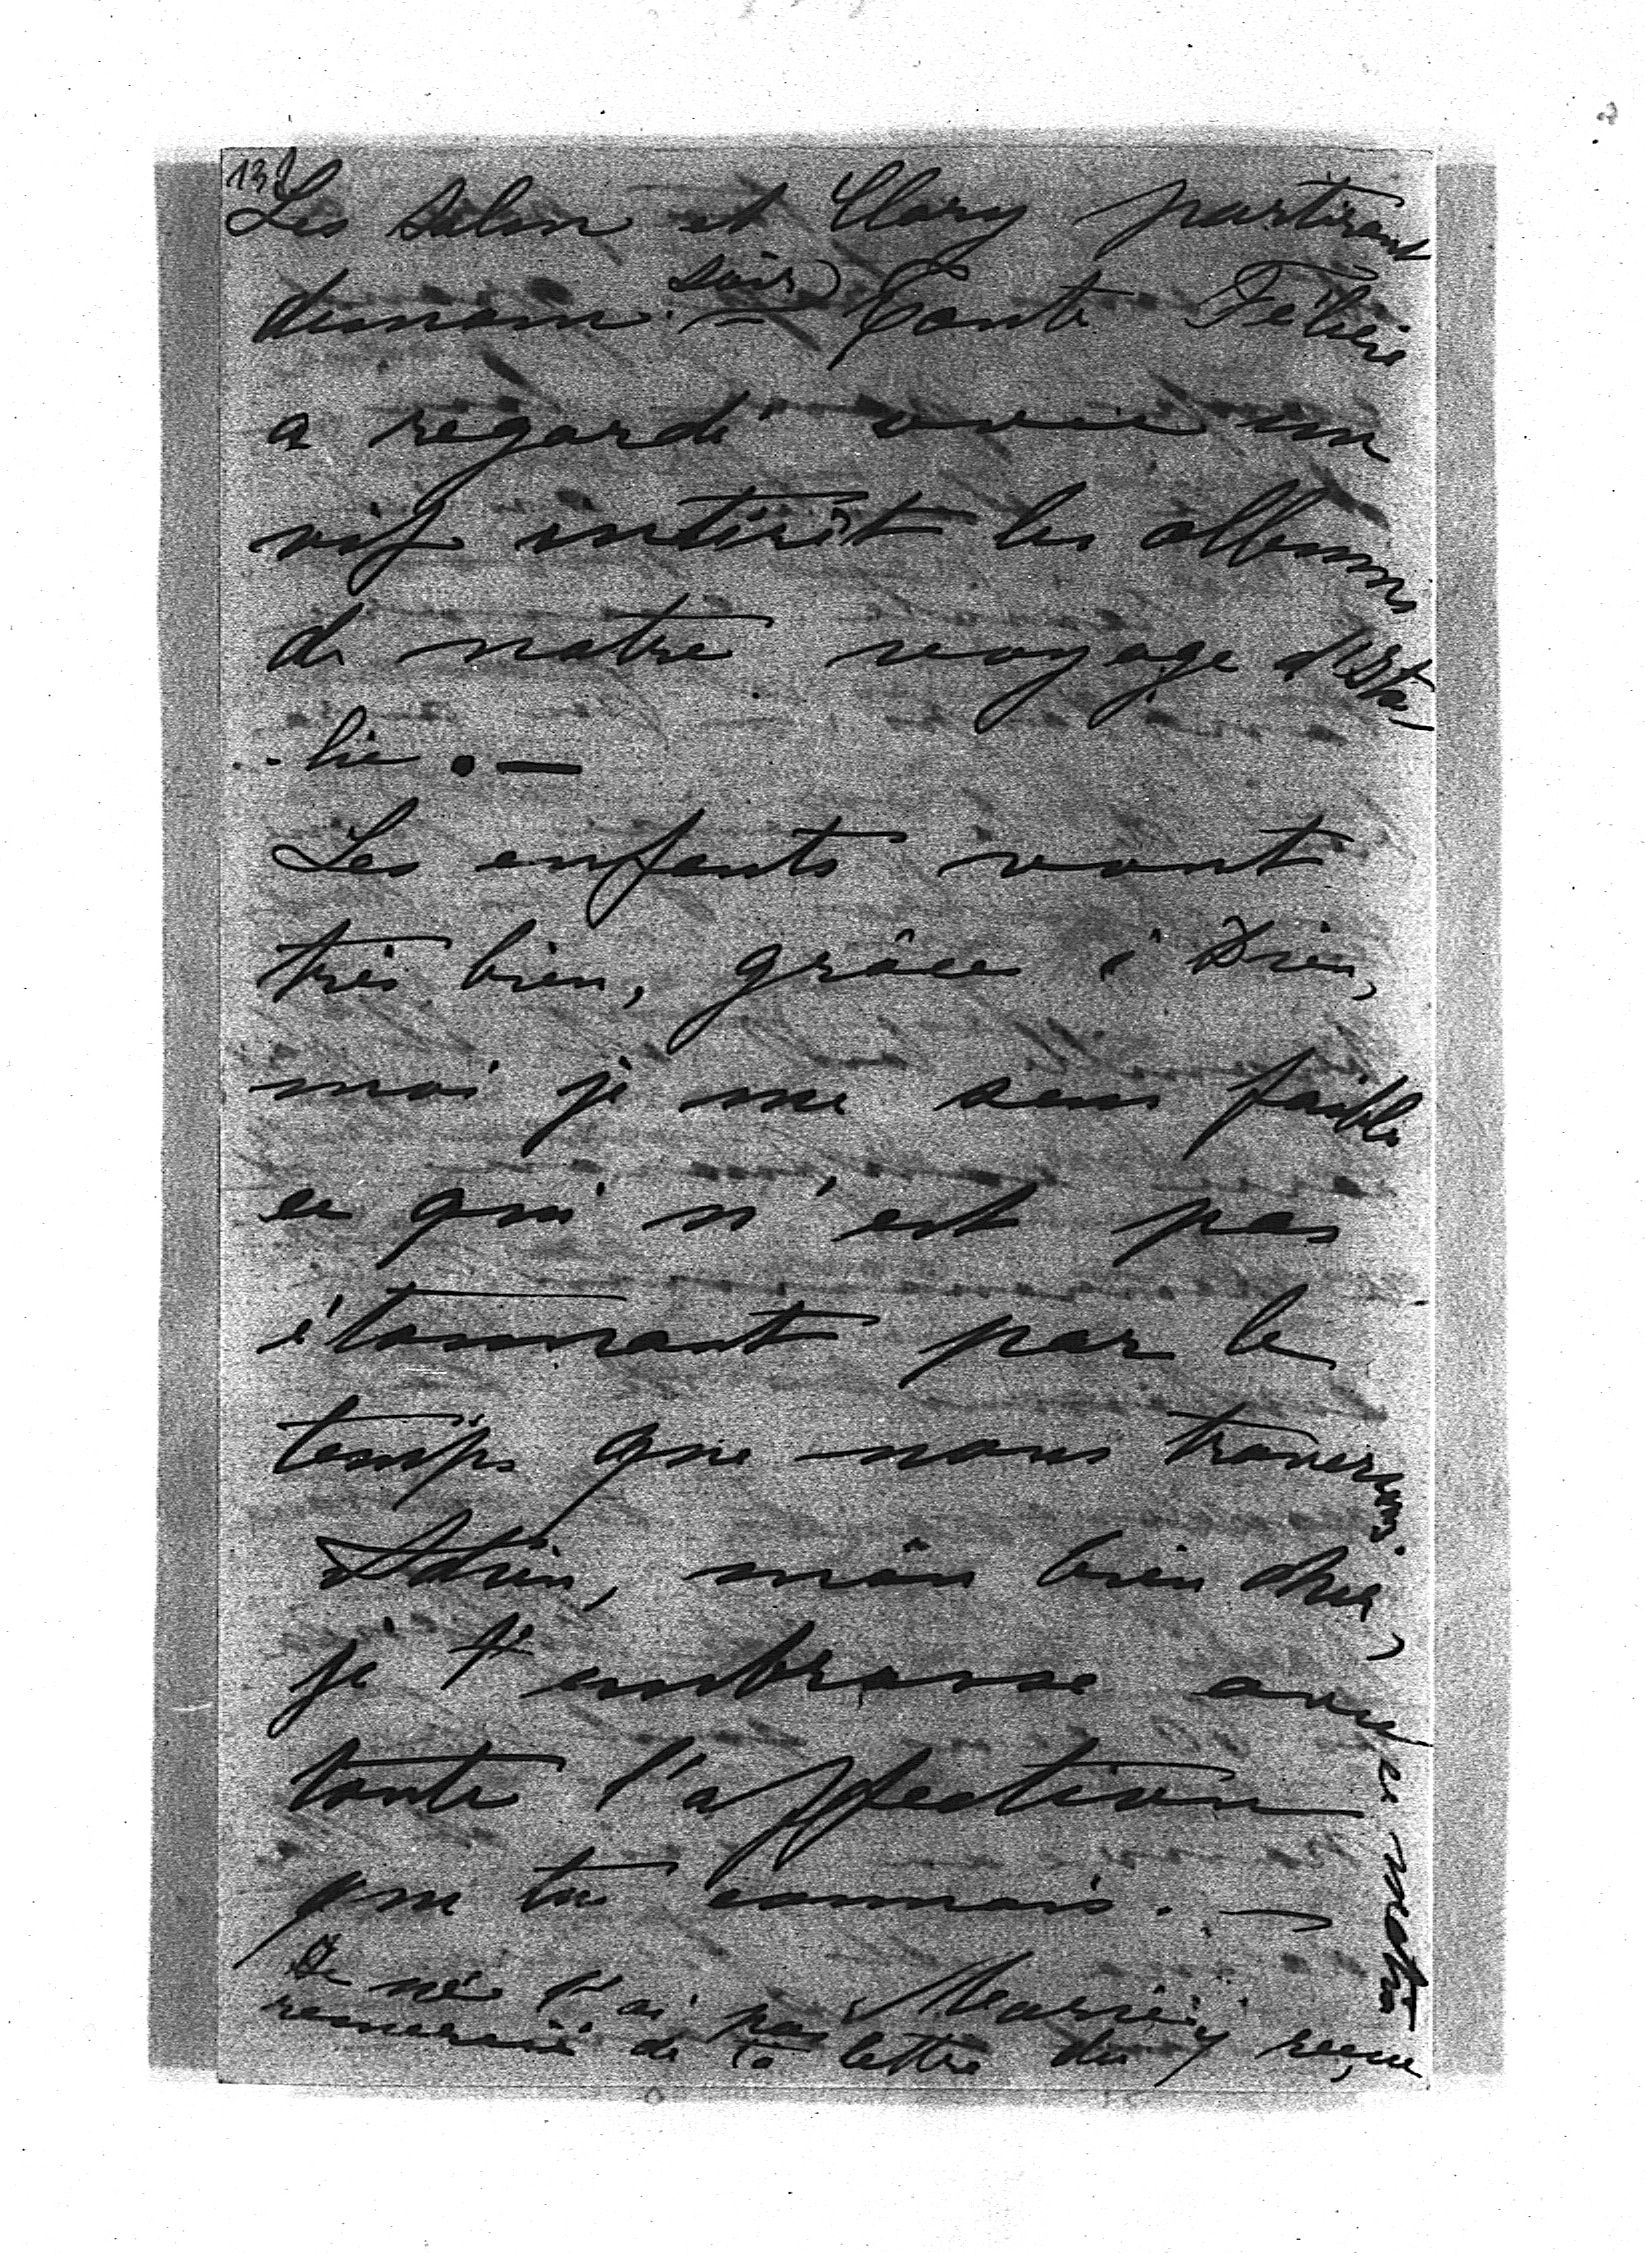 13)
Les Salm et Clary partiront
demain soir – Tante Félicie
a regardé avec un
vif intérêt les albums
de notre voyage d'Ita
lie. —
Les enfants vont
très bien, grâce à Dieu,
moi je me sens faible
ce qui n'est pas
étonnant par le
temps que nous traversons.
Adieu, mon bien cher,
je t'embrasse avec
toute l'affection
que tu connais. —
Marie
Je ne t'ai pas
remercié de ta lettre du 7 reçue
ce matin